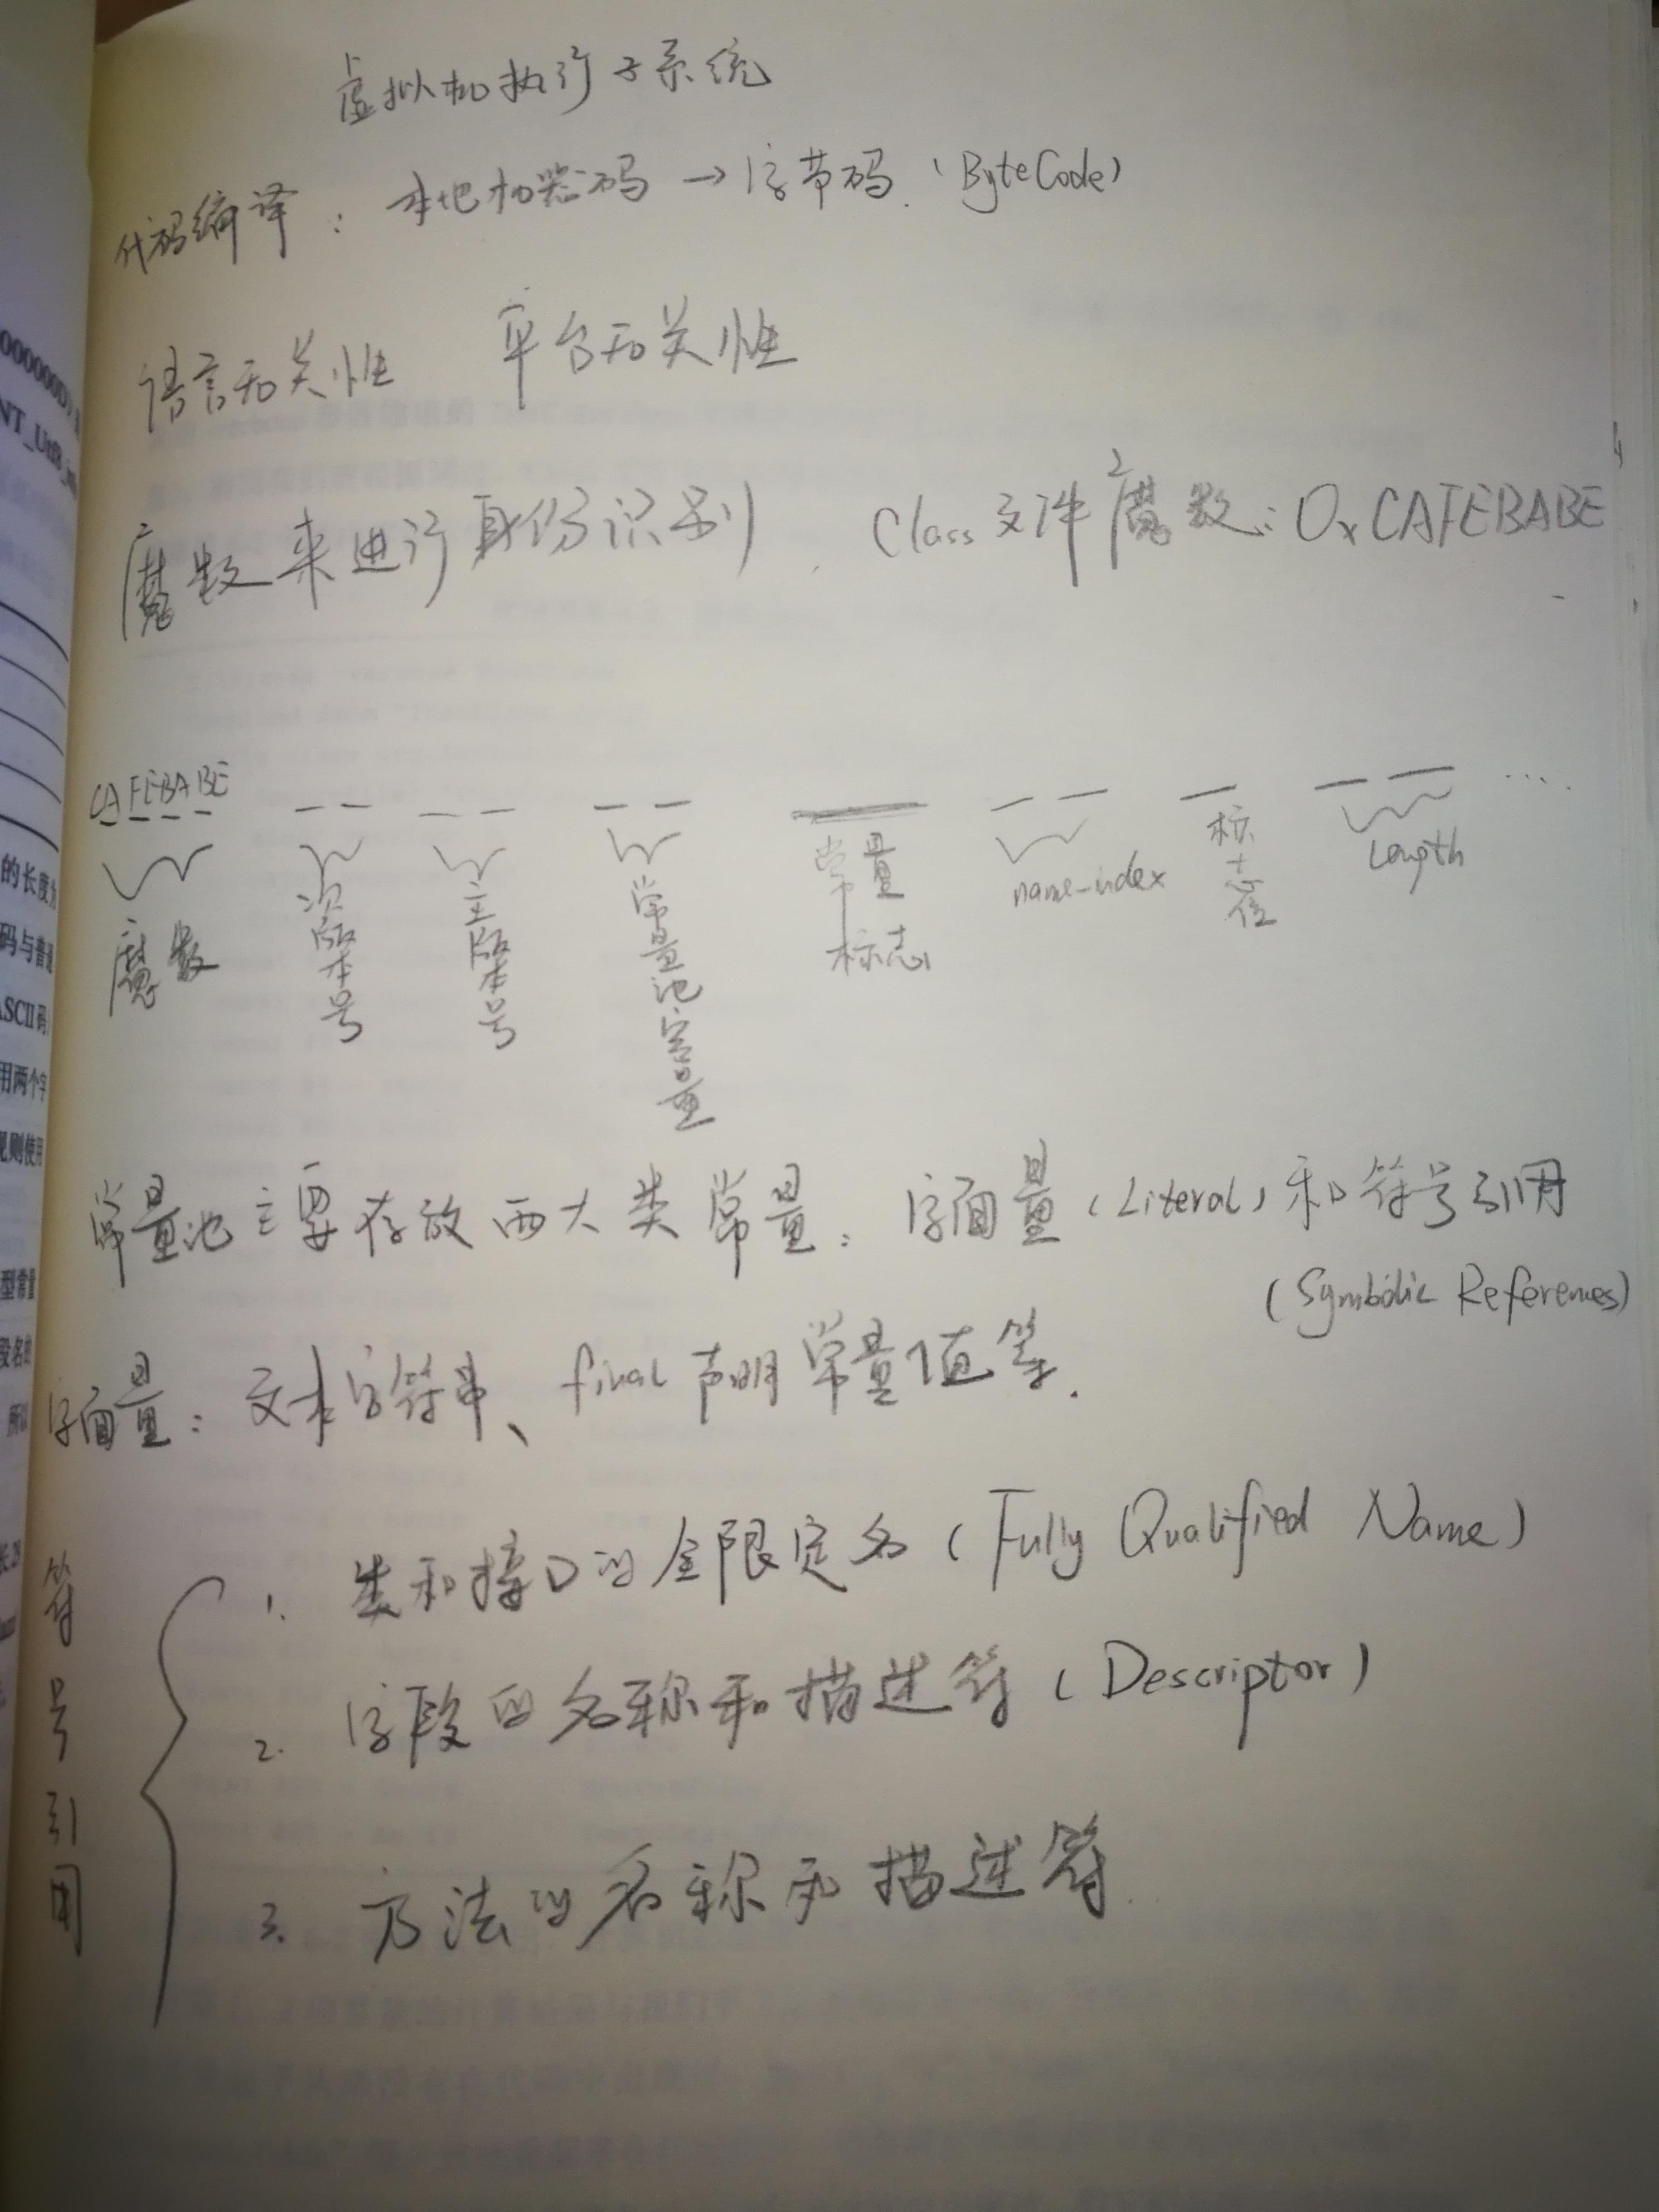 虚拟机执行子系统
代码编译：本地机器码 → 字节码.（ByteCode）
语言无关性 平台无关性
魔数来进行身份识别. Class文件魔数：0xCAFEBABE
CAFEBABE
魔数 次版本号 主版本号 常量池容量 常量标志 name-index 标志位 Length ...
常量池主要存放两大类常量：字面量（Literal）和符号引用
（Symbolic References）
字面量：文本字符串、final声明常量值等.
符号引用
1. 类和接口的全限定名（Fully Qualified Name）
2. 字段的名称和描述符（Descriptor）
3. 方法的名称和描述符.
的长度为
码与普通
ASCII码
用两个字
规则使用
型常量
段名的
所以